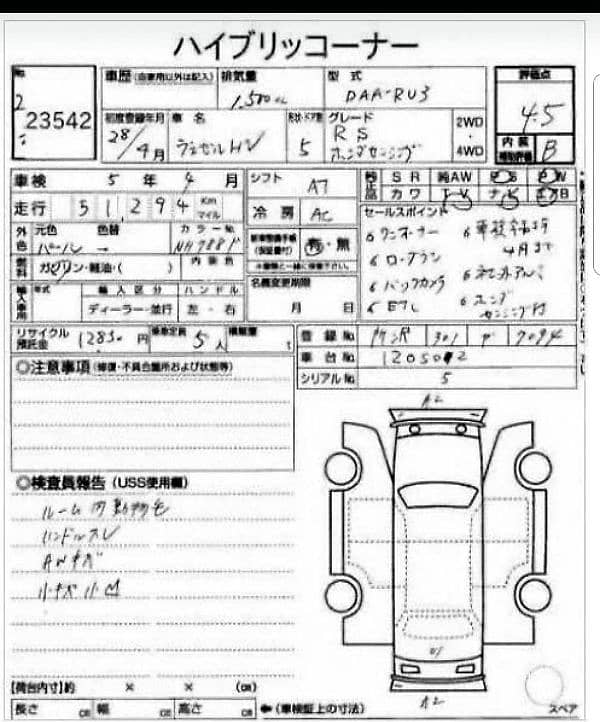 ハイブリッコーナー
No.
23542
車歴 (自家用以外は記入)
排気量
1,500 cc
型式
DAA-RU3
評価点
4.5
内装
補助評価
B
初度登録年月
28/4月
車名
ヴェゼルHV
形状・ドア数
5
グレード
RS
ホンダセンシング
2WD
・
4WD
車検 5年 4月
シフト AT
純正品
SR 純AW PS PW
カワ TV ナビ エアB
走行 51,294 Km マイル
冷房 AC
セールスポイント
ワンオーナー
ローラン
バックカメラ
ETC
4月まで
社外アルミ
ホンダ
センシング付
外色
元色
パール
色替
→
カラーNo.
NH788P
新車整備手帳
(保証書付)
有・無
燃料
ガソリン・軽油・( )
内装色
名義変更期限
月 日
輸入車用
年式
輸入区分
ハンドル
ディーラー・並行
左・右
リサイクル
預託金
12830 円
乗車定員
5人
積載量
t
登録No.
所沢 301
7094
車台No.
1205012
シリアルNo.
5
◎注意事項 (修復・不具合箇所および状態等)
◎検査員報告 (USS使用欄)
ルーム内動物毛
ハンドルスレ
AWキズ
小キズ小凹
A2
U1
A2
【荷台内寸】約 × × (cm)
長さ cm 幅 cm 高さ cm
←(車検証上の寸法)
スペア